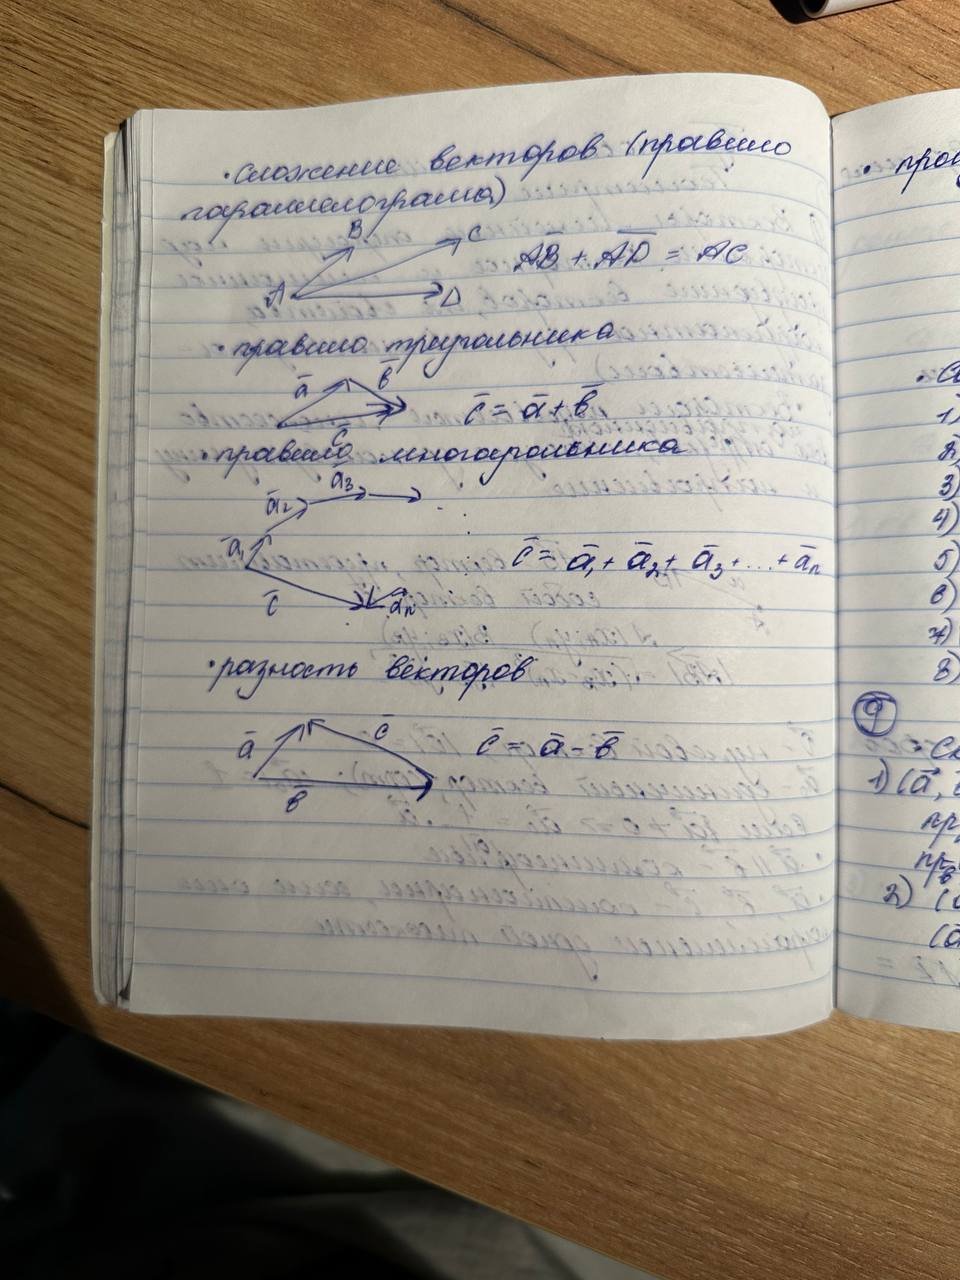 · сложение векторов (правило
параллелограма)
B
C
A
D
A̅B̅ + A̅D̅ = AC
· правило треугольника
a̅
b̅
c̅
c̅ = a̅ + b̅
· правило многоугольника
a̅₁
a̅₂
a̅₃
a̅ₙ
c̅
c̅ = a̅₁ + a̅₂ + a̅₃ + ... + a̅ₙ
· разность векторов
a̅
b̅
c̅
c̅ = a̅ - b̅
1)
2)
3)
4)
5)
6)
7)
8)
9
1) (a̅,
пр
пр
2)